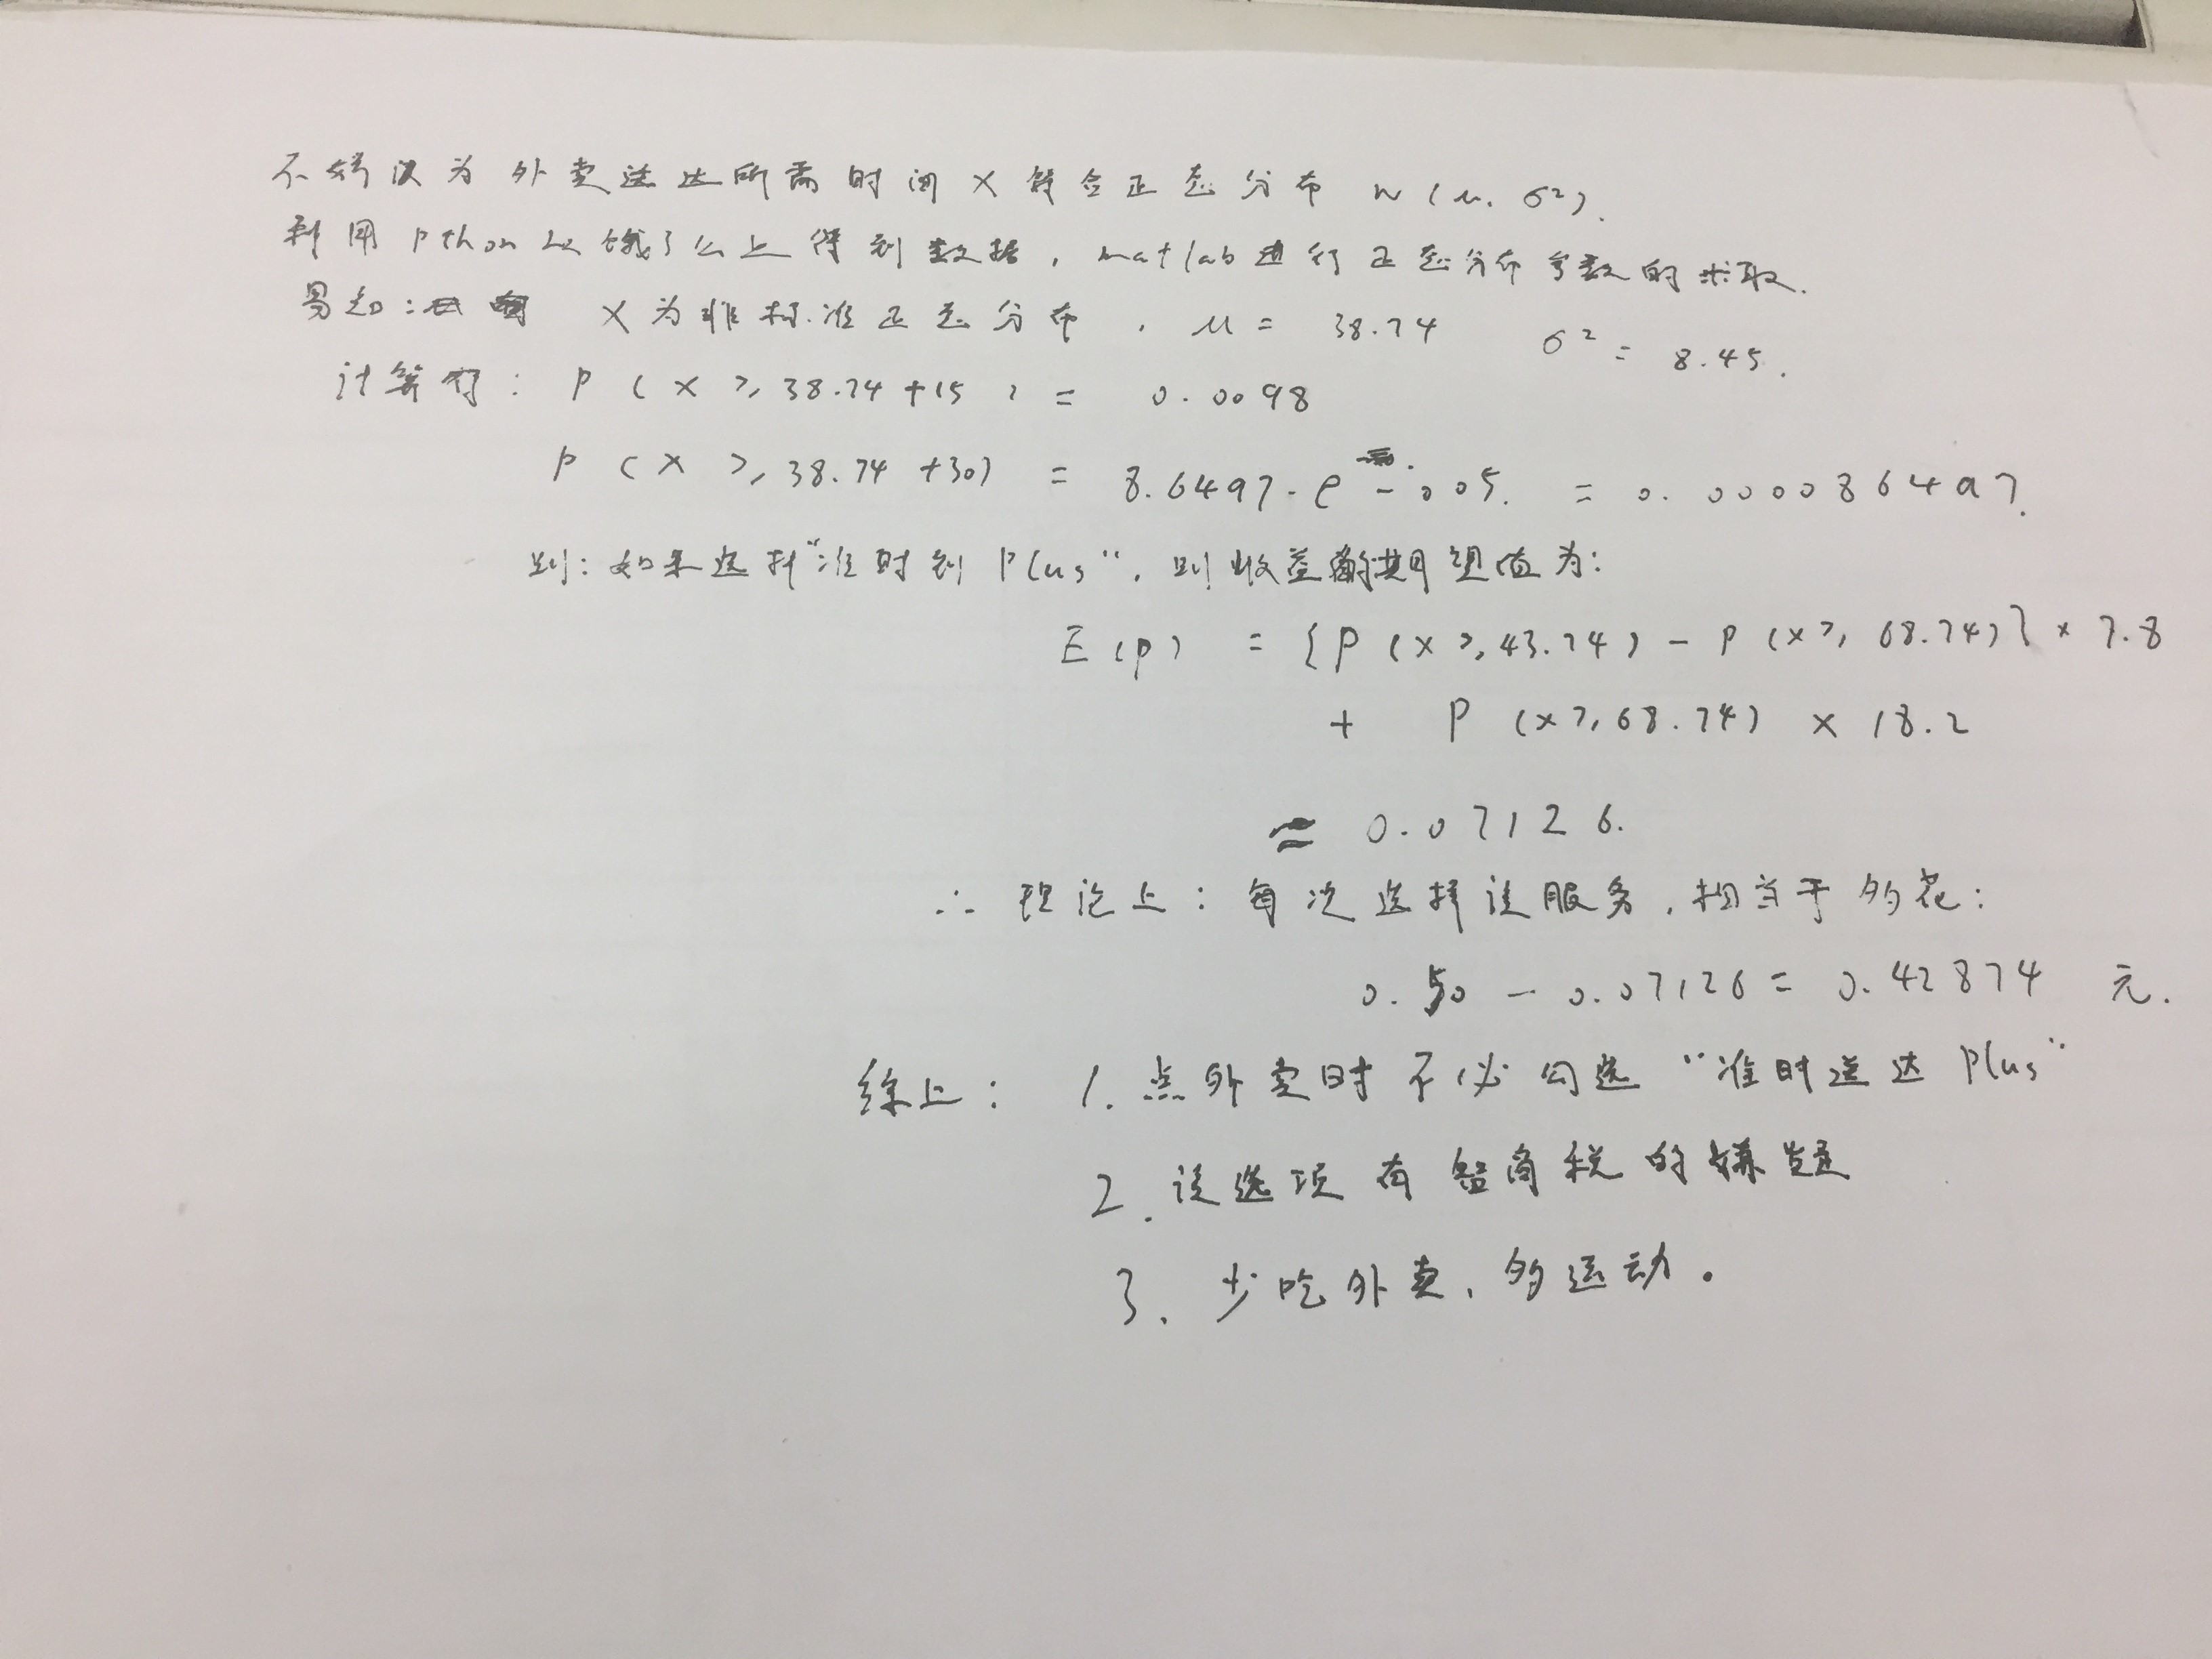 不妨设为外卖送达所需时间 X 符合正态分布 N(μ, σ²).
利用 Pthon 从饿了么上得到数据, matlab 进行正态分布参数的求取.
易知: X 为非标准正态分布, μ = 38.74 σ² = 8.45.
计算得: P (X ≥ 38.74+15) = 0.0098
P (X ≥ 38.74+30) = 8.6497·e-005. = 0.000086497.
则: 如果选择"准时到 Plus", 则收益的期望值为:
E(P) = {P (X ≥ 43.74) - P (X ≥ 68.74)} × 7.8
+ P (X ≥ 68.74) × 18.2
≈ 0.07126.
∴ 理论上: 每次选择该服务, 相当于多花:
0.50 - 0.07126 = 0.42874 元.
综上: 1. 点外卖时不必勾选 "准时送达 Plus"
2. 该选项有智商税的嫌疑
3. 少吃外卖, 多运动。